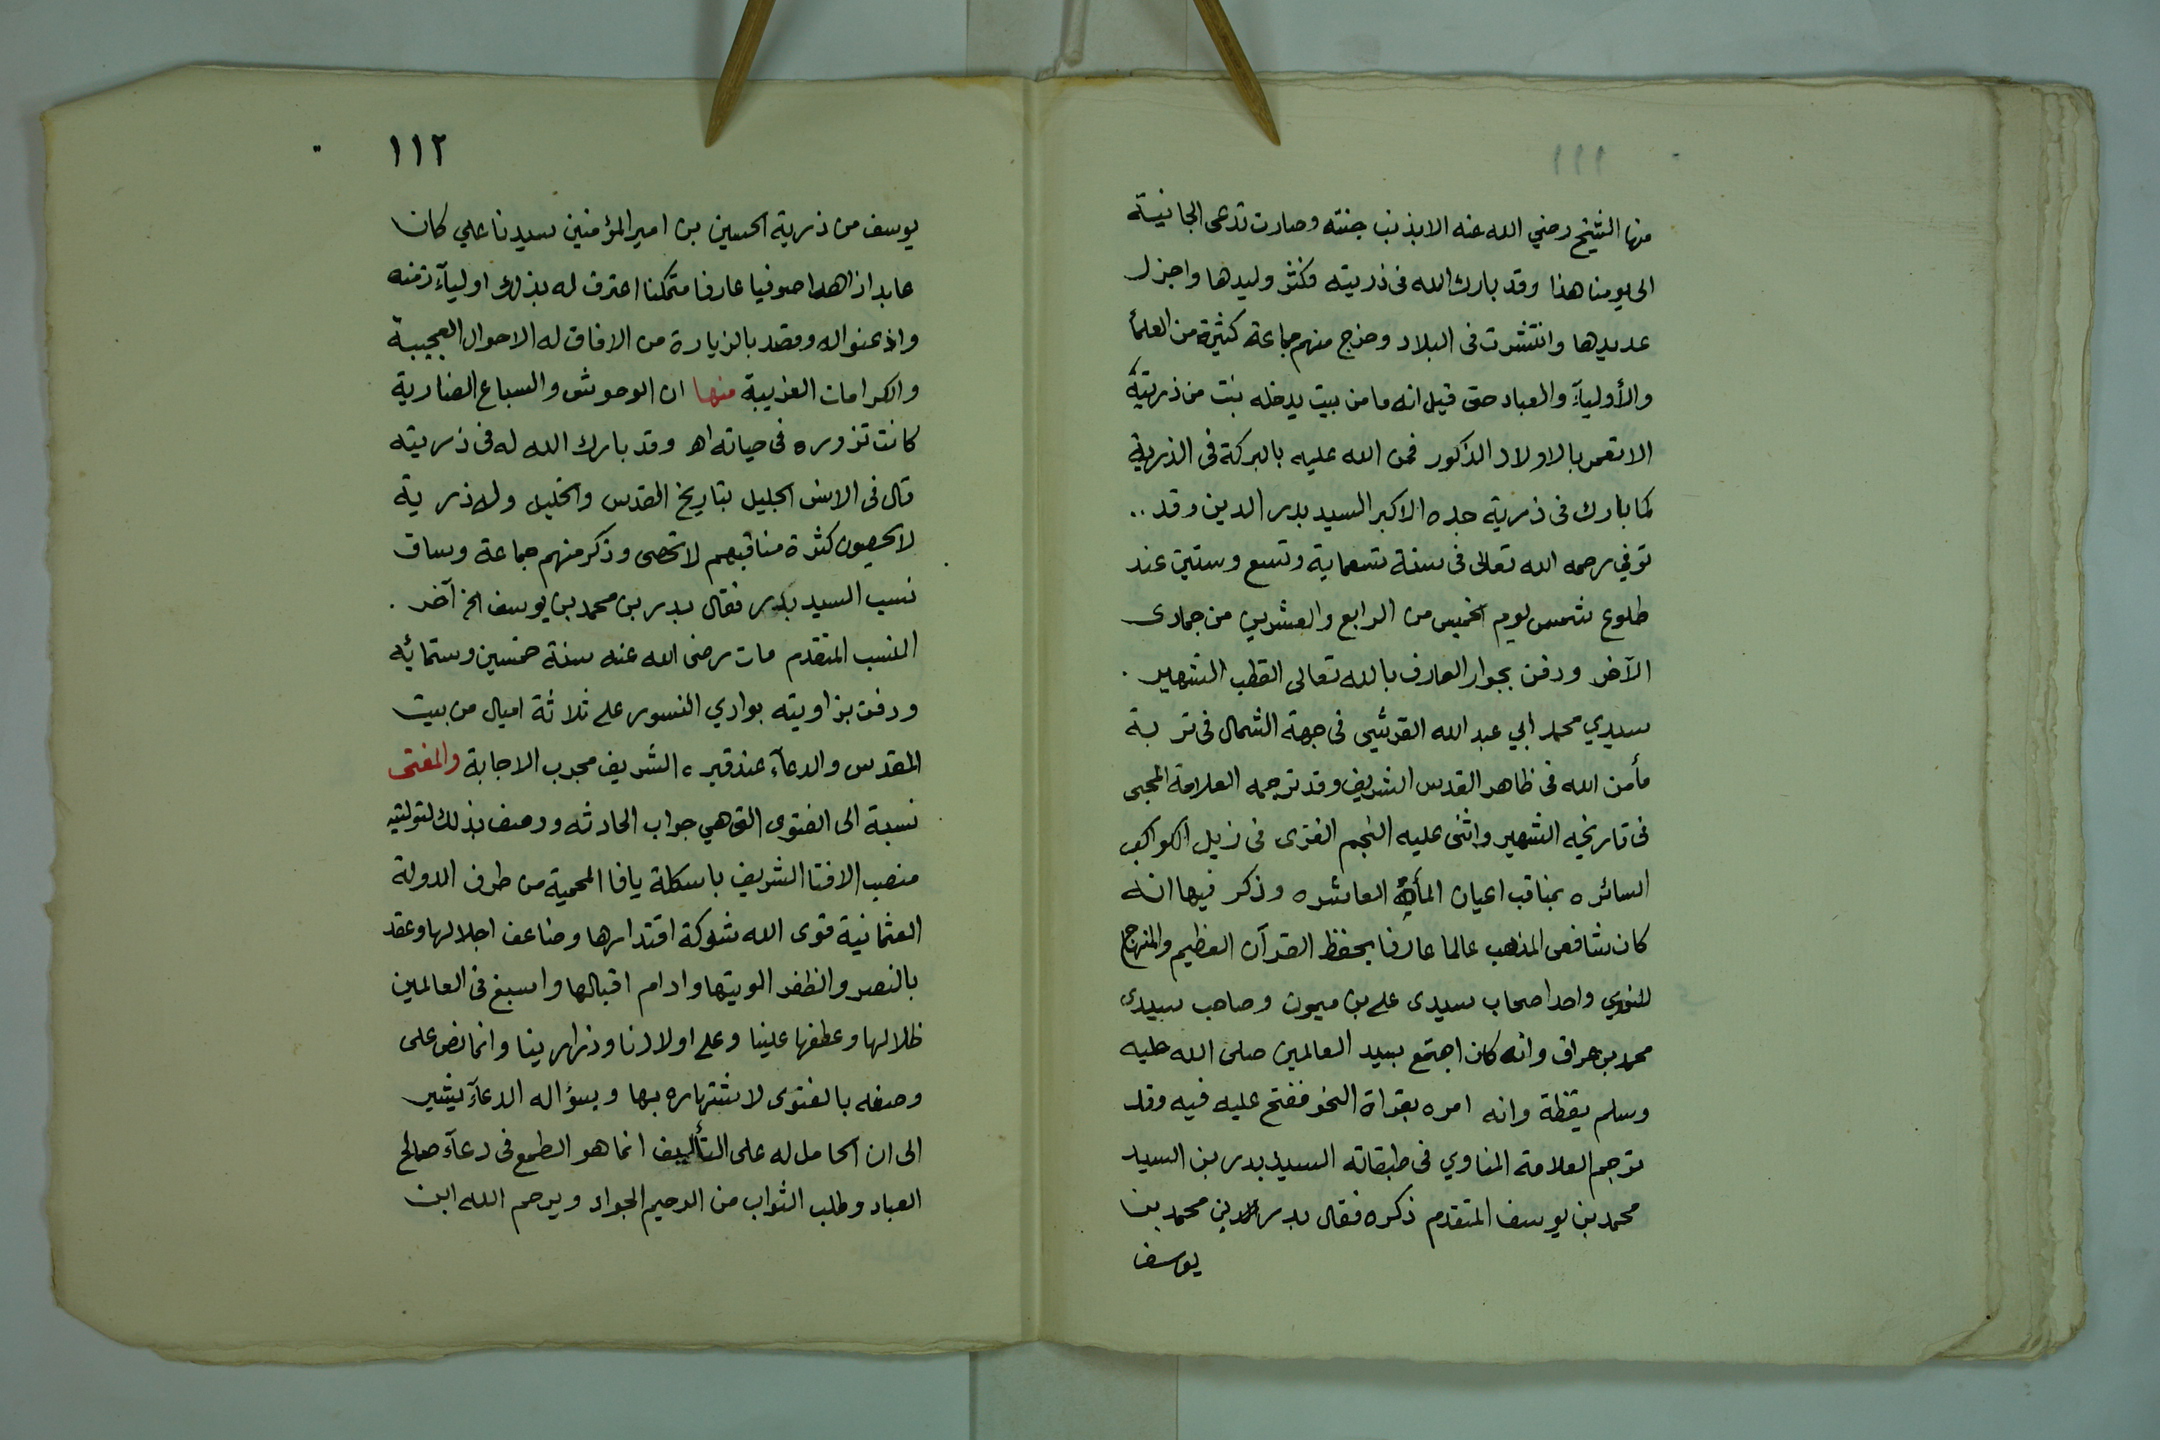 منها الشيخ رضي الله عنه الا بذنب جنته وصارت تدعى الجانية
الى يومنا هذا وقد بارك الله فى ذريته فكثر وليدها واجزل
عديدها وانتشرت فى البلاد وخرج منهم جماعة كثيرة من العلمأ
والأوليآء والعباد حتى قيل انه ما من بيت يدخله بنت من ذريته
الا تعمر بالاولاد الذكور فمن الله عليه بالبركة فى الذرية
كما بارك فى ذرية جده الاكبر السيد بدر الدين وقد ..
توفي رحمه الله تعالى فى سنة تسعماية وتسع وستين عند
طلوع شمس يوم الخميس من الرابع والعشرين من جمادى
الآخر ودفن بجوار العارف بالله تعالى القطب الشهير .
سيدي محمد ابي عبد الله القرشي فى جهة الشمال فى تربة
مأمن الله فى ظاهر القدس الشريف وقد ترجمه العلامة المحبى
فى تاريخه الشهير واثنى عليه النجم الغزى فى ذيل الكواكب
السائره بمناقب اعيان المأية العاشره وذكر فيها انه
كان شافعى المذهب عالما عارفا يحفظ القرآن العظيم والمنهاج
للنووي واحد اصحاب سيدى على بن ميمون وصاحب سيدى
محمد بن عراق وانه كان اجتمع بسيد العالمين صلى الله عليه
وسلم يقظة وانه امره بقراة النحو ففتح عليه فيه وقد
ترجم العلامة المناوي فى طبقاته السيد بدر بن السيد
محمد بن يوسف المتقدم ذكره فقال بدر الدين محمد بن
يوسف
١١٢
يوسف من ذرية الحسين بن امير المؤمنين سيدنا علي كان
عابدا زاهدا صوفيا عارفا متمكنا اعترف له بذلك اوليآء زمنه
واذعنوا له وقصد بالزيارة من الافاق له الاحوال العجيبة
والكرامات الغريبة منها ان الوحوش والسباع الضارية
كانت تزوره فى حياته اهـ وقد بارك الله له فى ذريته
قال فى الانس الجليل بتاريخ القدس والخليل وله ذرية
لا يحصون كثرة مناقبهم لا تحصى وذكر منهم جماعة وساق
نسب السيد بدر فقال بدر بن محمد بن يوسف الخ آخر .
النسب المتقدم مات رضى الله عنه سنة خمسين وستمائه
ودفن بزاويته بوادي النسور على ثلاثة اميال من بيت
المقدس والدعآء عند قبره الشريف مجرب الاجابة والمفتى
نسبة الى الفتوى التى هي جواب الحادثه ووصف بذلك لتوليته
منصب الافتا الشريف باسكلة يافا المحمية من طرف الدولة
العثمانية قوى الله شوكة اقتدارها وضاعف اجلالها وعقد
بالنصر والظفر الويتها وادام اقبالها واسبغ فى العالمين
ظلالها وعطفها علينا وعلى اولادنا وذرارينا وانما نص على
وصفه بالفتوى لاشتهاره بها وبسؤاله الدعآء يشير
الى ان الحامل له على التأليف انما هو الطمع فى دعآء صالح
العباد وطلب الثواب من الرحيم الجواد ويرحم الله ابن